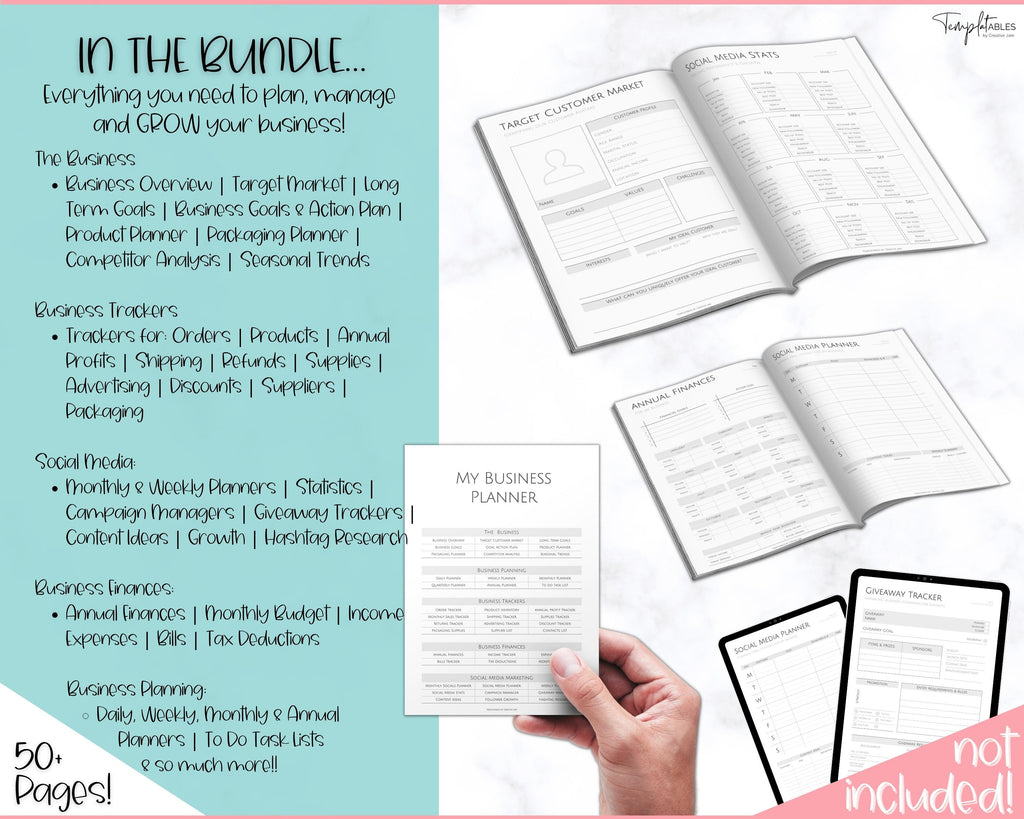 IN THE BUNDLE...
Everything you need to plan, manage
and GROW your business!
The Business
• Business Overview | Target Market | Long
Term Goals | Business Goals & Action Plan |
Product Planner | Packaging Planner |
Competitor Analysis | Seasonal Trends
Business Trackers
• Trackers for: Orders | Products | Annual
Profits | Shipping | Refunds | Supplies |
Advertising | Discounts | Suppliers |
Packaging
Social Media:
• Monthly & Weekly Planners | Statistics |
Campaign Managers | Giveaway Trackers |
Content Ideas | Growth | Hashtag Research
Business Finances:
• Annual Finances | Monthly Budget | Income
Expenses | Bills | Tax Deductions
Business Planning:
○ Daily, Weekly, Monthly & Annual
Planners | To Do Task Lists
& so much more!!
50+
Pages!
TEMPLATABLES
by Creative Jam
TARGET CUSTOMER MARKET
CUSTOMER PROFILE
GENDER
AGE RANGE
MARITAL STATUS
OCCUPATION
ANNUAL INCOME
LOCATION
NAME
GOALS
VALUES
CHALLENGES
MY IDEAL CUSTOMER
INTERESTS
WHAT CAN YOU UNIQUELY OFFER YOUR IDEAL CUSTOMER?
SOCIAL MEDIA STATS
JAN
FEB
MAR
MAY
JUN
JUL
AUG
SEP
OCT
NOV
DEC
ANNUAL FINANCES
FINANCIAL GOALS
SOCIAL MEDIA PLANNER
M
T
W
T
F
S
S
MY BUSINESS
PLANNER
THE BUSINESS
BUSINESS OVERVIEW TARGET CUSTOMER MARKET LONG TERM GOALS
BUSINESS GOALS GOAL ACTION PLAN PRODUCT PLANNER
PACKAGING PLANNER COMPETITOR ANALYSIS SEASONAL TRENDS
BUSINESS PLANNING
DAILY PLANNER WEEKLY PLANNER MONTHLY PLANNER
QUARTERLY PLANNER ANNUAL PLANNER TO DO TASK LIST
BUSINESS TRACKERS
ORDER TRACKER PRODUCT INVENTORY ANNUAL PROFIT TRACKER
MONTHLY SALES TRACKER SHIPPING TRACKER SUPPLIES TRACKER
RETURNS TRACKER ADVERTISING TRACKER DISCOUNT TRACKER
PACKAGING SUPPLIES SUPPLIER LIST CONTACTS LIST
BUSINESS FINANCES
ANNUAL FINANCES INCOME TRACKER
BILLS TRACKER TAX DEDUCTIONS
SOCIAL MEDIA MARKETING
MONTHLY SOCIALS PLANNER SOCIAL MEDIA PLANNER
SOCIAL MEDIA STATS CAMPAIGN MANAGER
CONTENT IDEAS FOLLOWER GROWTH
SOCIAL MEDIA PLANNER
M
T
W
T
F
S
S
GIVEAWAY TRACKER
GIVEAWAY
NAME
GIVEAWAY GOAL
ITEMS & PRIZES
SPONSORS
PROMOTION
ENTRY REQUIREMENTS & RULES
not
included!